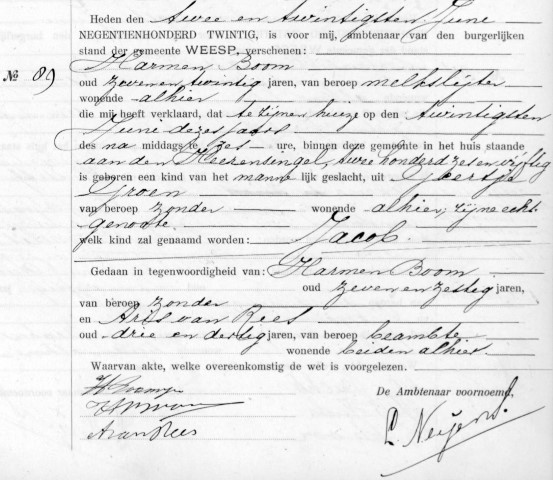 Heden den twee en twintigsten Juni
NEGENTIENHONDERD TWINTIG, is voor mij, ambtenaar van den burgerlijken
stand der gemeente WEESP, verschenen:
Harmen Boom
No 89
oud zeven en twintig jaren, van beroep melkslijter
wonende alhier
die mij heeft verklaard, dat te zijnen huize op den twintigsten
Juni dezes jaars
des na middags te zes ure, binnen deze gemeente in het huis staande
aan den Heerensingel, twee honderd zes en vijftig
is geboren een kind van het manne lijk geslacht, uit Geertje
Groen
van beroep zonder wonende alhier, zijne echt-
genoote
welk kind zal genaamd worden: Jacob.
Gedaan in tegenwoordigheid van: Harmen Boom
oud zeven en zestig jaren,
van beroep zonder
en Aris van Rees
oud drie en dertig jaren, van beroep beambte
wonende beiden alhier.
Waarvan akte, welke overeenkomstig de wet is voorgelezen.
H Boom
De Ambtenaar voornoemd,
H Boom
A van Rees